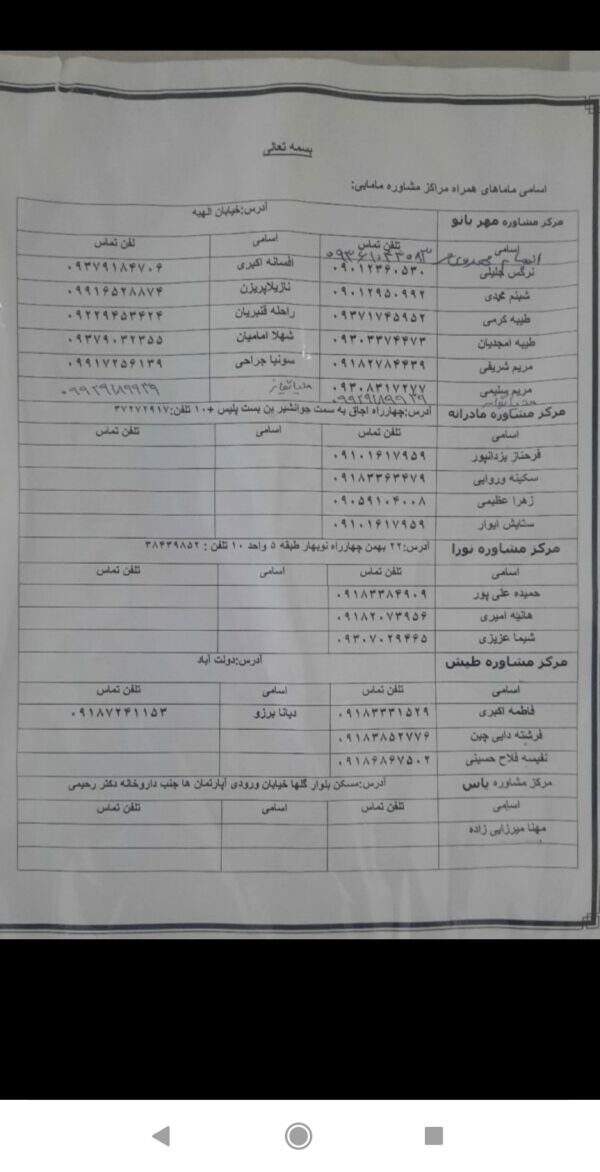 بسمه تعالی
اسامی ماماهای همراه مراکز مشاوره مامایی:
مرکز مشاوره مهر بانو آدرس:خیابان الهیه
اسامی تلفن تماس اسامی تلفن تماس
الهام
نرگس جلیلی ۰۹۰۱۲۳۶۰۵۳۰ افسانه اکبری ۰۹۳۷۹۱۸۴۷۰۶
شبنم محمدی ۰۹۰۱۲۹۵۰۹۹۲ نازیلاپریزن ۰۹۹۱۶۵۲۸۸۷۴
طیبه کرمی ۰۹۳۷۱۷۴۵۹۵۲ راحله قنبریان ۰۹۲۲۹۴۵۳۴۲۴
طیبه امجدیان ۰۹۳۰۳۳۷۴۴۷۳ شهلا امامیان ۰۹۳۷۹۰۳۲۳۵۵
مریم شریفی ۰۹۱۸۲۷۸۴۴۳۹ سونیا جراحی ۰۹۹۱۷۲۵۶۱۳۹
مریم ۰۹۳۰۸۳۱۷۲۷۷
مرکز مشاوره مادرانه آدرس:چهارراه اجاق به سمت جوانشیر بن بست پلیس +۱۰ تلفن:۳۷۲۷۲۹۱۷
اسامی تلفن تماس اسامی تلفن تماس
فرحناز یزدانپور ۰۹۱۰۱۶۱۷۹۵۹
سکینه وروایی ۰۹۱۸۳۳۶۳۴۷۹
زهرا عظیمی ۰۹۰۵۹۱۰۴۰۰۸
ستایش ایوار ۰۹۱۰۱۶۱۷۹۵۹
مرکز مشاوره نورا آدرس:۲۲ بهمن چهارراه نوبهار طبقه ۵ واحد ۱۰ تلفن : ۳۸۴۳۹۸۵۲
اسامی تلفن تماس اسامی تلفن تماس
حمیده علی پور ۰۹۱۸۳۳۸۴۹۰۹
هانیه امیری ۰۹۱۸۲۰۷۳۹۵۶
شیما عزیزی ۰۹۳۰۷۰۲۹۴۶۵
مرکز مشاوره طپش آدرس:دولت آباد
اسامی تلفن تماس اسامی تلفن تماس
فاطمه اکبری ۰۹۱۸۳۳۳۱۵۲۹ دیانا برزو ۰۹۱۸۷۲۴۱۱۵۳
فرشته دایی چین ۰۹۱۸۳۸۵۲۷۷۶
نفیسه فلاح حسینی ۰۹۱۸۶۸۶۷۵۰۲
مرکز مشاوره یاس آدرس:مسکن بلوار گلها خیابان ورودی آپارتمان ها جنب داروخانه دکتر رحیمی
اسامی تلفن تماس اسامی تلفن تماس
مهنا میرزایی زاده